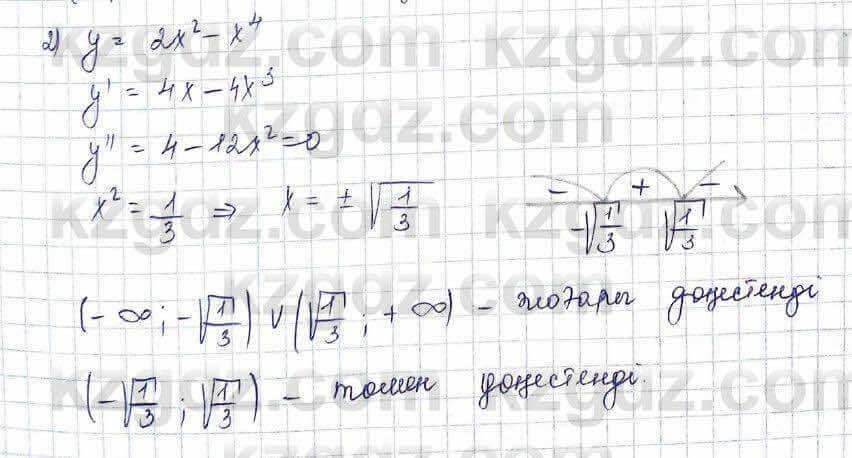 2) y = 2x² - x⁴
y' = 4x - 4x³
y'' = 4 - 12x² = 0
x² = 1/3 ⇒ x = ± √(1/3)
- + -
-√(1/3) √(1/3)
(-∞; -√(1/3)) ∨ (√(1/3); +∞) - жоғары дөңестенді
(-√(1/3); √(1/3)) - төмен дөңестенді.
kzgdz.com